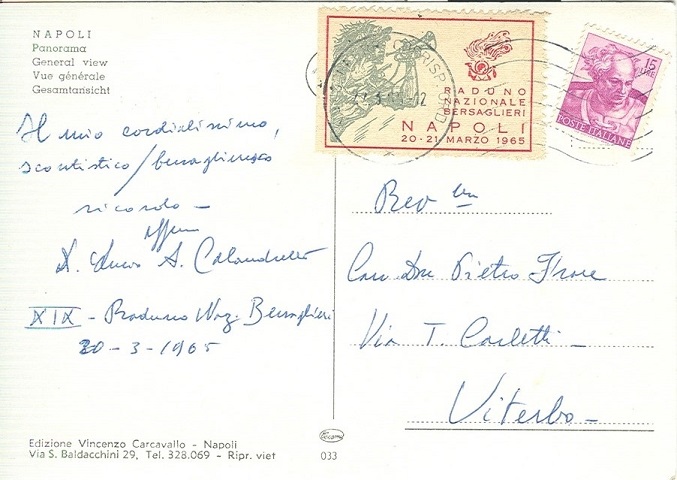 NAPOLI
Panorama
General view
Vue générale
Gesamtansicht
Il mio cordialissimo,
scoutistico/bersaglieresco
ricordo —
XIX - Raduno Naz. Bersaglieri
20-3-1965
Edizione Vincenzo Carcavallo - Napoli
Via S. Baldacchini 29, Tel. 328.069 - Ripr. viet
033
RADUNO
NAZIONALE
BERSAGLIERI
NAPOLI
20-21 MARZO 1965
15
LIRE
POSTE ITALIANE
Rev
Pietro
Via T. Carletti -
Viterbo -